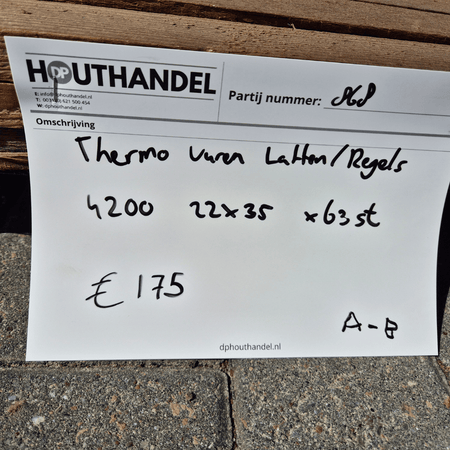 HOUTHANDEL
DP
E: info@dphouthandel.nl
W: dphouthandel.nl
Partij nummer:
Omschrijving
Thermo Vuren Latten/Regels
4200 22x35 x63st
€ 175
A-B
dphouthandel.nl